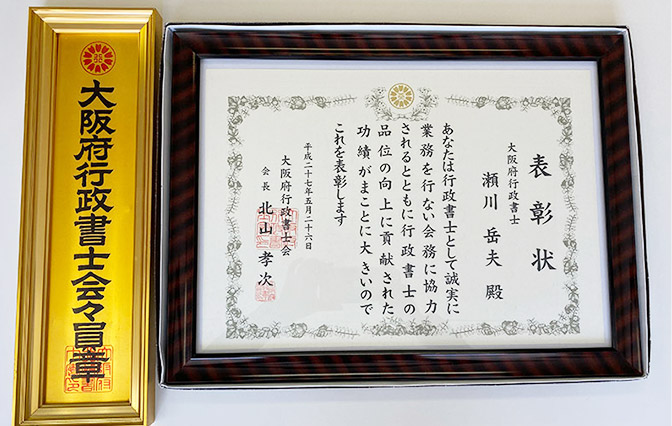 大阪府行政書士会々員章
表彰状
大阪府行政書士
瀬川岳夫 殿
あなたは行政書士として誠実に
業務を行ない会務に協力
されるとともに行政書士の
品位の向上に貢献された
功績がまことに大きいので
これを表彰します
平成二十七年五月二十六日
大阪府行政書士会
会長 北山孝次